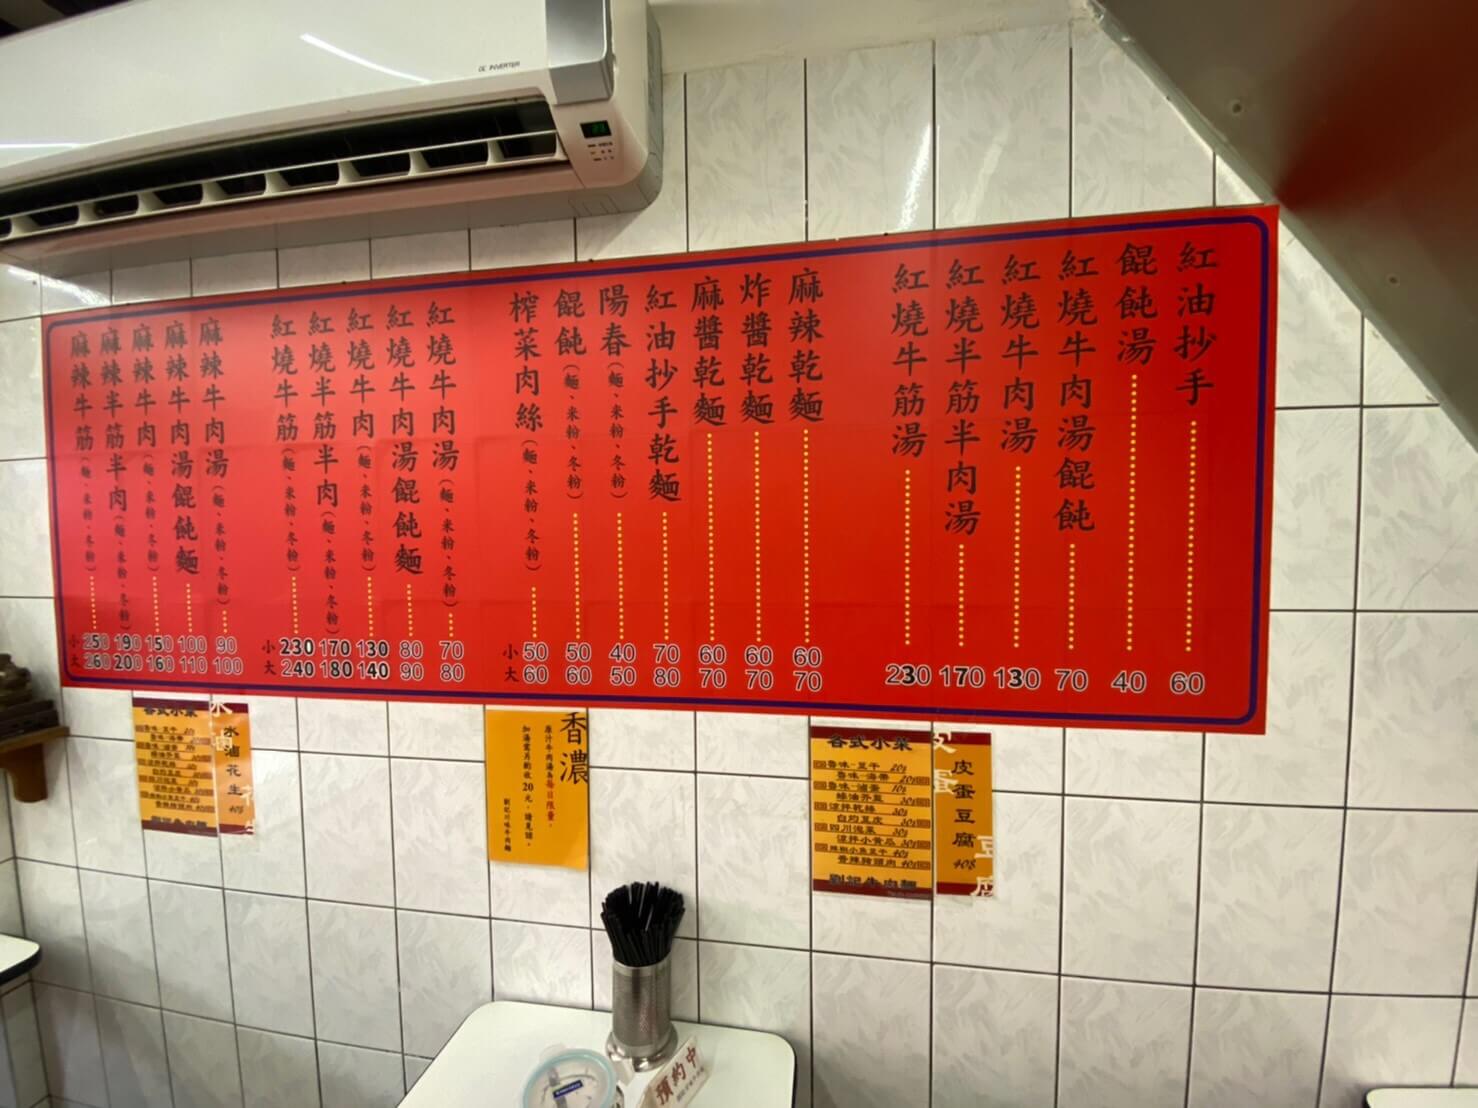 DC INVERTER
紅油抄手 60
餛飩湯 40
紅燒牛肉湯餛飩 70
紅燒牛肉湯 130
紅燒半筋半肉湯 170
紅燒牛筋湯 230
麻辣乾麵 60 70
炸醬乾麵 60 70
麻醬乾麵 60 70
紅油抄手乾麵 70 80
陽春(麵、米粉、冬粉) 40 50
餛飩(麵、米粉、冬粉) 50 60
榨菜肉絲(麵、米粉、冬粉) 小50 大60
紅燒牛肉湯(麵、米粉、冬粉) 70 80
紅燒牛肉湯餛飩麵 80 90
紅燒牛肉(麵、米粉、冬粉) 130 140
紅燒半筋半肉(麵、米粉、冬粉) 170 180
紅燒牛筋(麵、米粉、冬粉) 小230 大240
麻辣牛肉湯(麵、米粉、冬粉) 90 100
麻辣牛肉湯餛飩麵 100 110
麻辣牛肉(麵、米粉、冬粉) 150 160
麻辣半筋半肉(麵、米粉、冬粉) 190 200
麻辣牛筋(麵、米粉、冬粉) 小250 大260
各式小菜
水滷花生 40$
香濃
原汁牛肉湯為每日限量，
加湯需另酌收20元，請見諒。
劉記川味牛肉麵
各式小菜
魯味-豆干 20$
魯味-海帶 20$
魯味-滷蛋 10$
蠔油芥菜 30$
涼拌乾絲 30$
白灼豆皮 30$
四川泡菜 30$
涼拌小黃瓜 30$
辣椒小魚豆干 40$
香辣豬頭肉 40$
劉記牛肉麵
皮蛋豆腐 40$
預約中